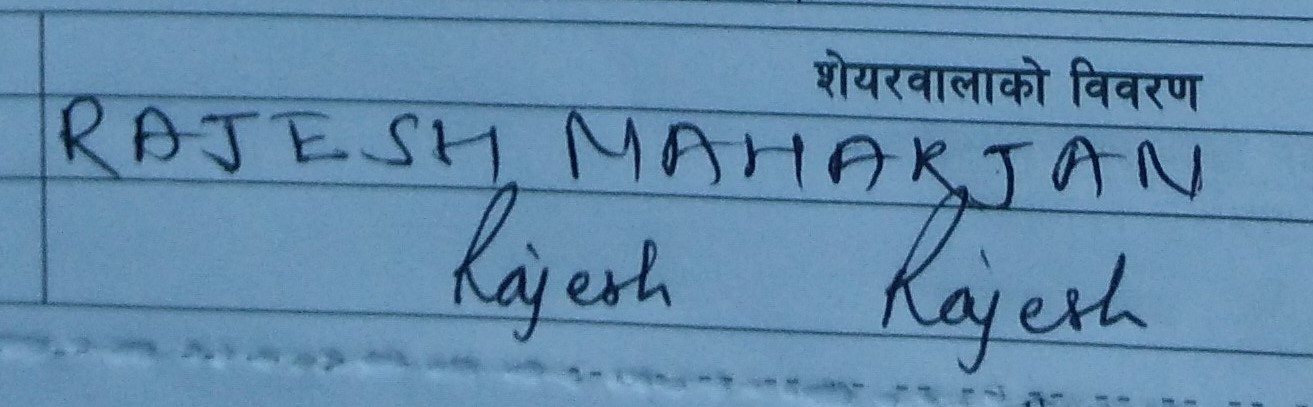 शेयरवालाको विवरण
RAJESH MAHARJAN
Rajesh Rajesh